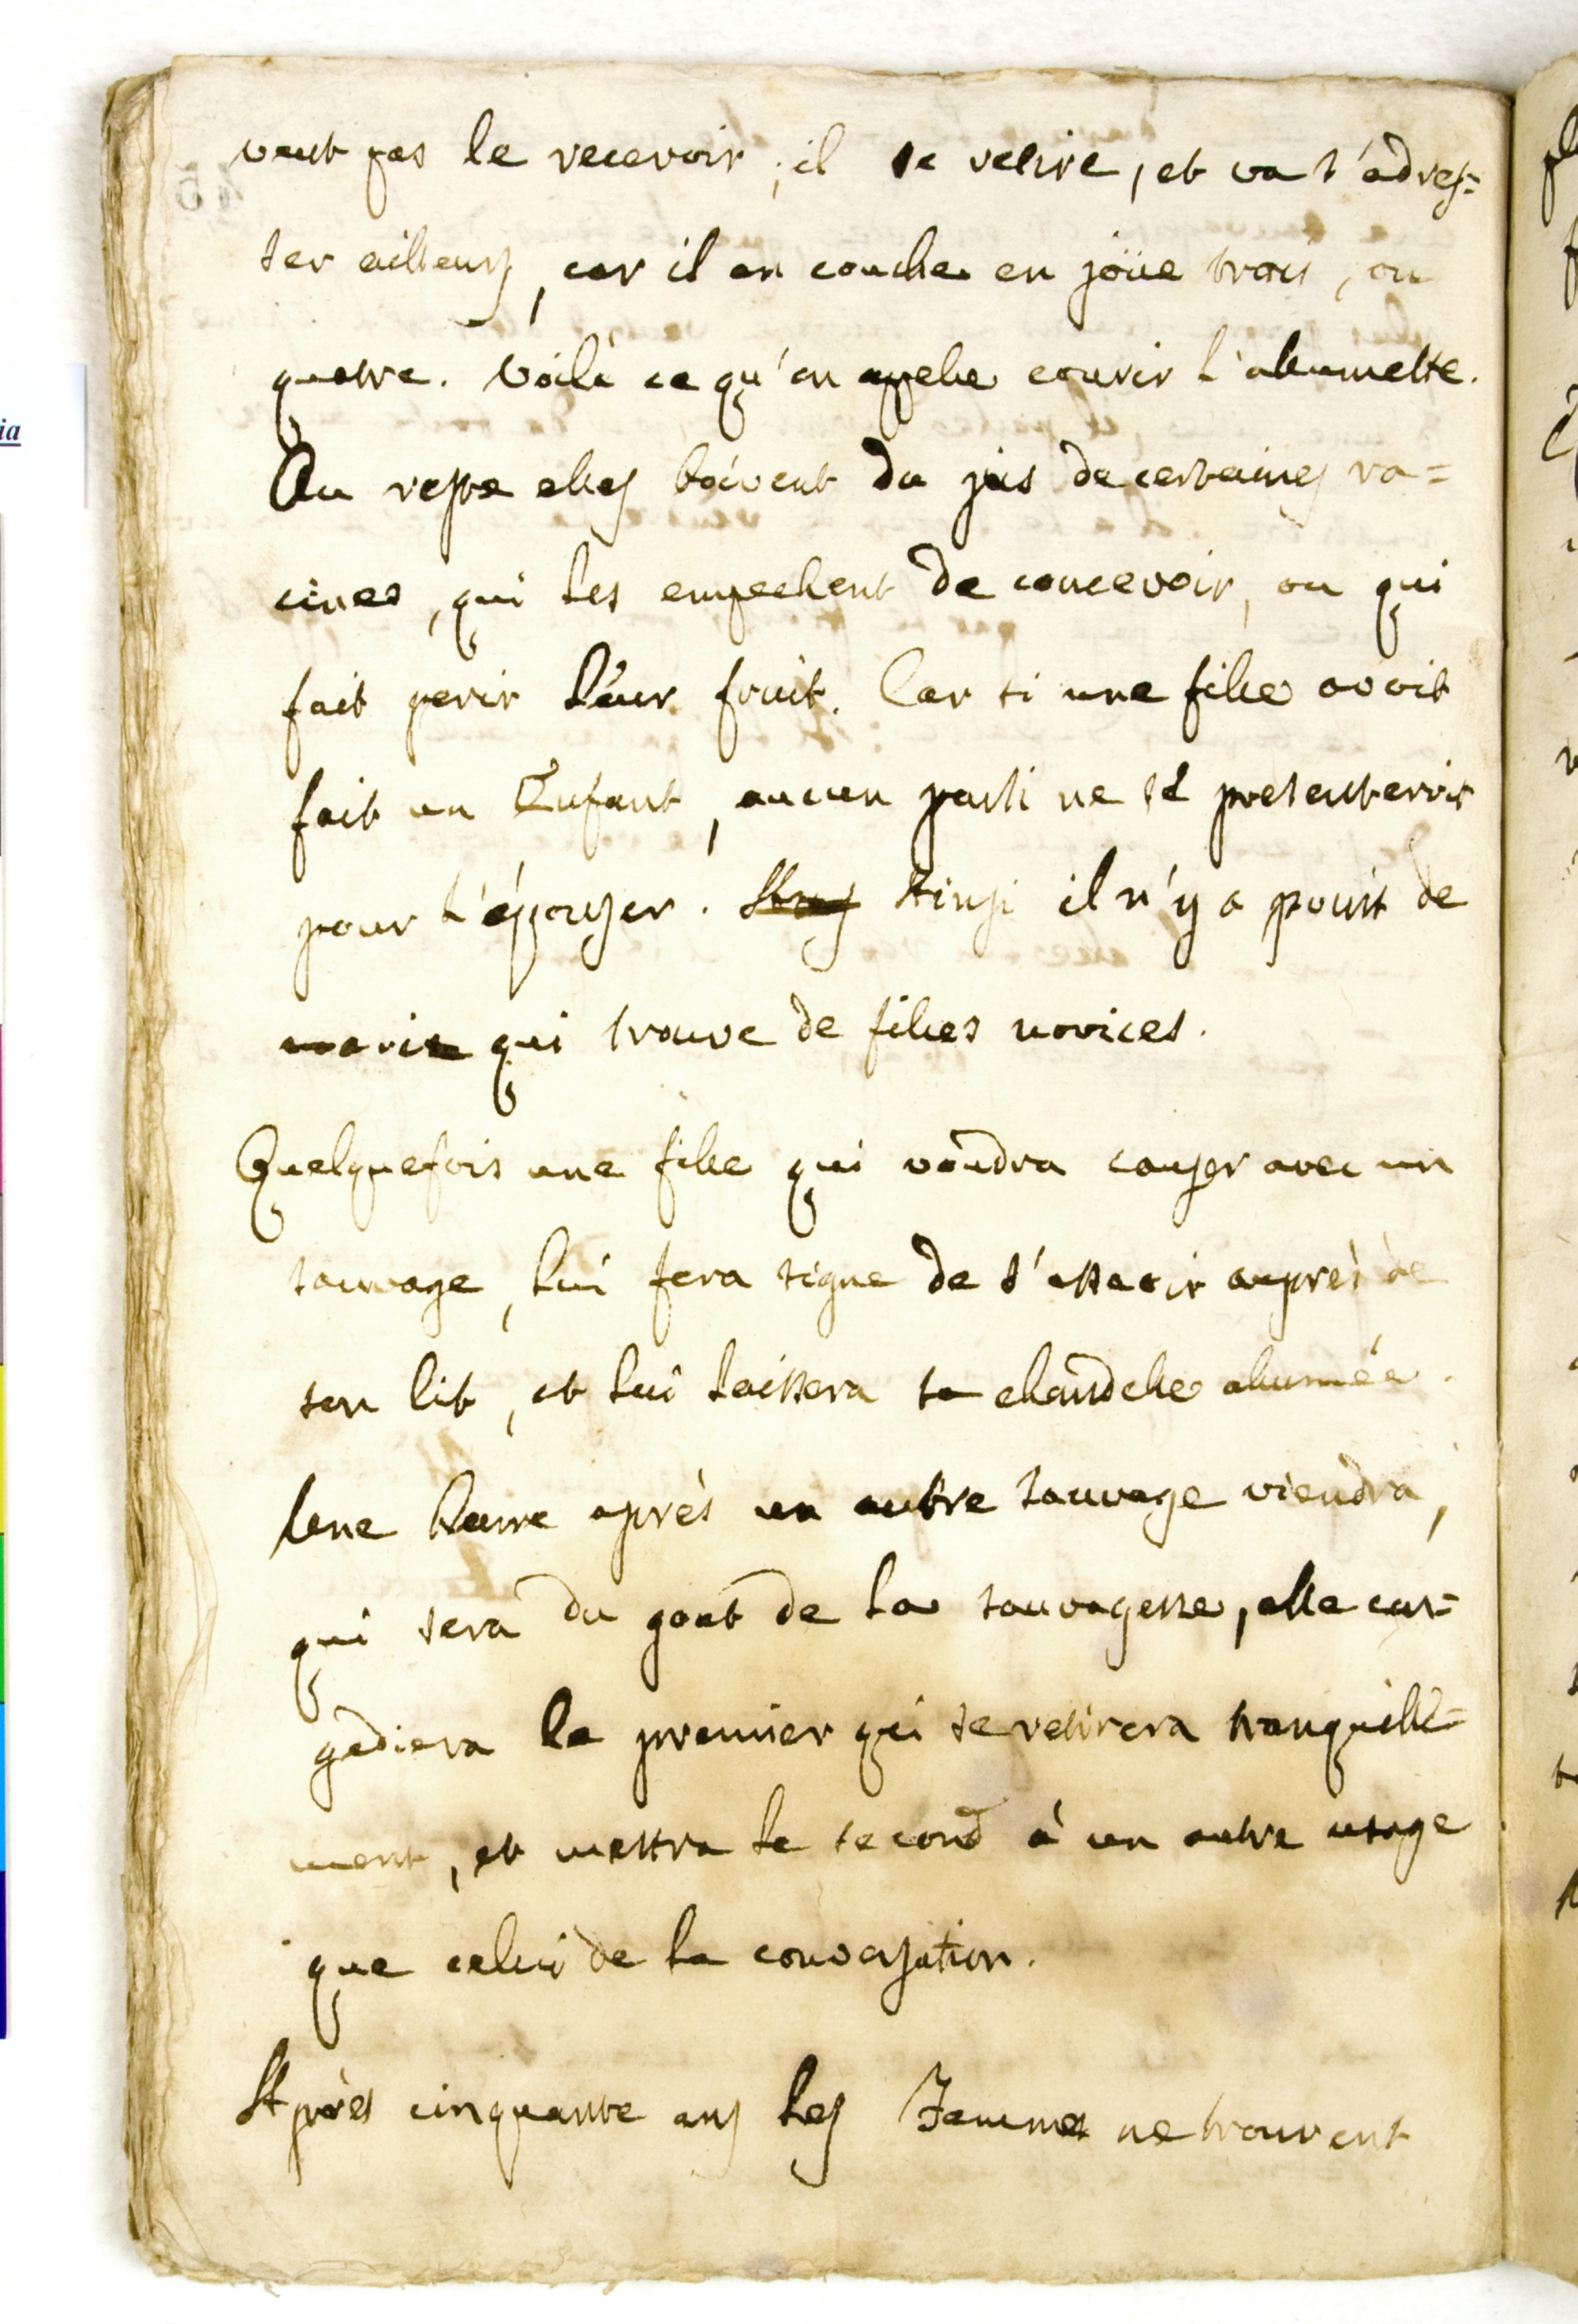 veut pas le recevoir, il se retire, et va s'adres=
ser ailleurs, car il en couche en joüe trois, ou
quatre. Voilà ce qu'on apelle courir l'alumette.
Au reste elles boivent du jus de certaines ra=
cines, qui les empechent de concevoir, ou qui
fait perir leur fruit. Car si une fille avoit
fait un Enfant, aucun parti ne se presenteroit
pour l'épouser. Ainsi il n'y a point de
maris qui trouve de filles novices.
Quelquefois une fille qui voudra causer avec un
sauvage, lui fera signe de s'asseoir auprès de
son lit, et lui laissera sa chandelle alumée.
Une heure après un autre sauvage viendra,
qui sera du gout de la sauvagesse, elle con=
gediera le premier qui se retirera tranquille=
ment, et mettra le second à un autre usage
que celui de la conversation.
Après cinquante ans les Femmes ne trouvent
ia